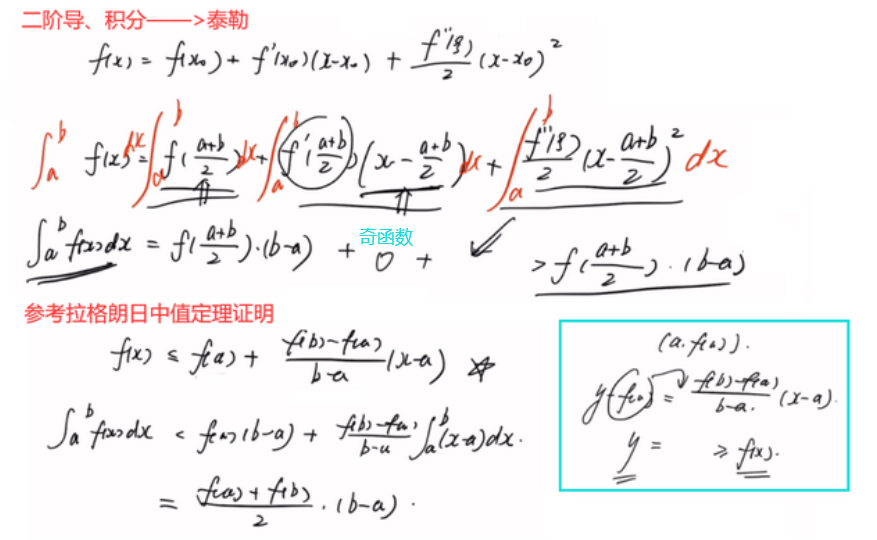 二阶导、积分——>泰勒
f(x) = f(x₀) + f'(x₀)(x-x₀) + f''(ξ)/2 (x-x₀)²
∫ₐᵇ f(x)dx = ∫ₐᵇ f((a+b)/2)dx + ∫ₐᵇ f'((a+b)/2)(x - (a+b)/2)dx + ∫ₐᵇ f''(ξ)/2 (x - (a+b)/2)² dx
∫ₐᵇ f(x)dx = f((a+b)/2)·(b-a) + 0 + > f((a+b)/2)·(b-a)
奇函数
参考拉格朗日中值定理证明
f(x) ≤ f(a) + (f(b)-f(a))/(b-a) (x-a)
∫ₐᵇ f(x)dx < f(a)(b-a) + (f(b)-f(a))/(b-a) ∫ₐᵇ (x-a)dx.
= (f(a)+f(b))/2 · (b-a).
(a, f(a)).
y-f(a) = (f(b)-f(a))/(b-a) (x-a).
y = ≥ f(x).